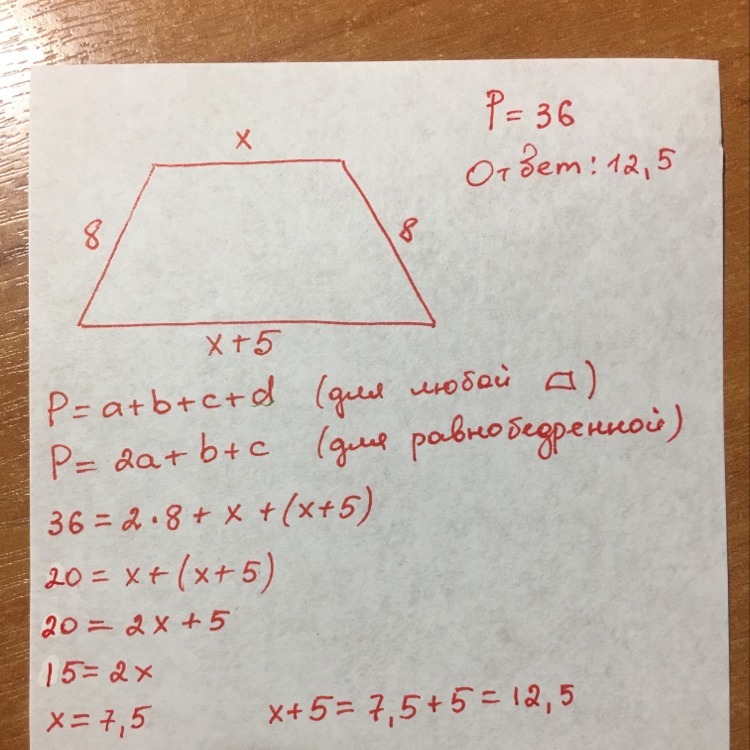 P = 36
Ответ: 12,5
x
8
8
x + 5
P = a + b + c + d (для любой ▱)
P = 2a + b + c (для равнобедренной)
36 = 2 · 8 + x + (x + 5)
20 = x + (x + 5)
20 = 2x + 5
15 = 2x
x = 7,5
x + 5 = 7,5 + 5 = 12,5